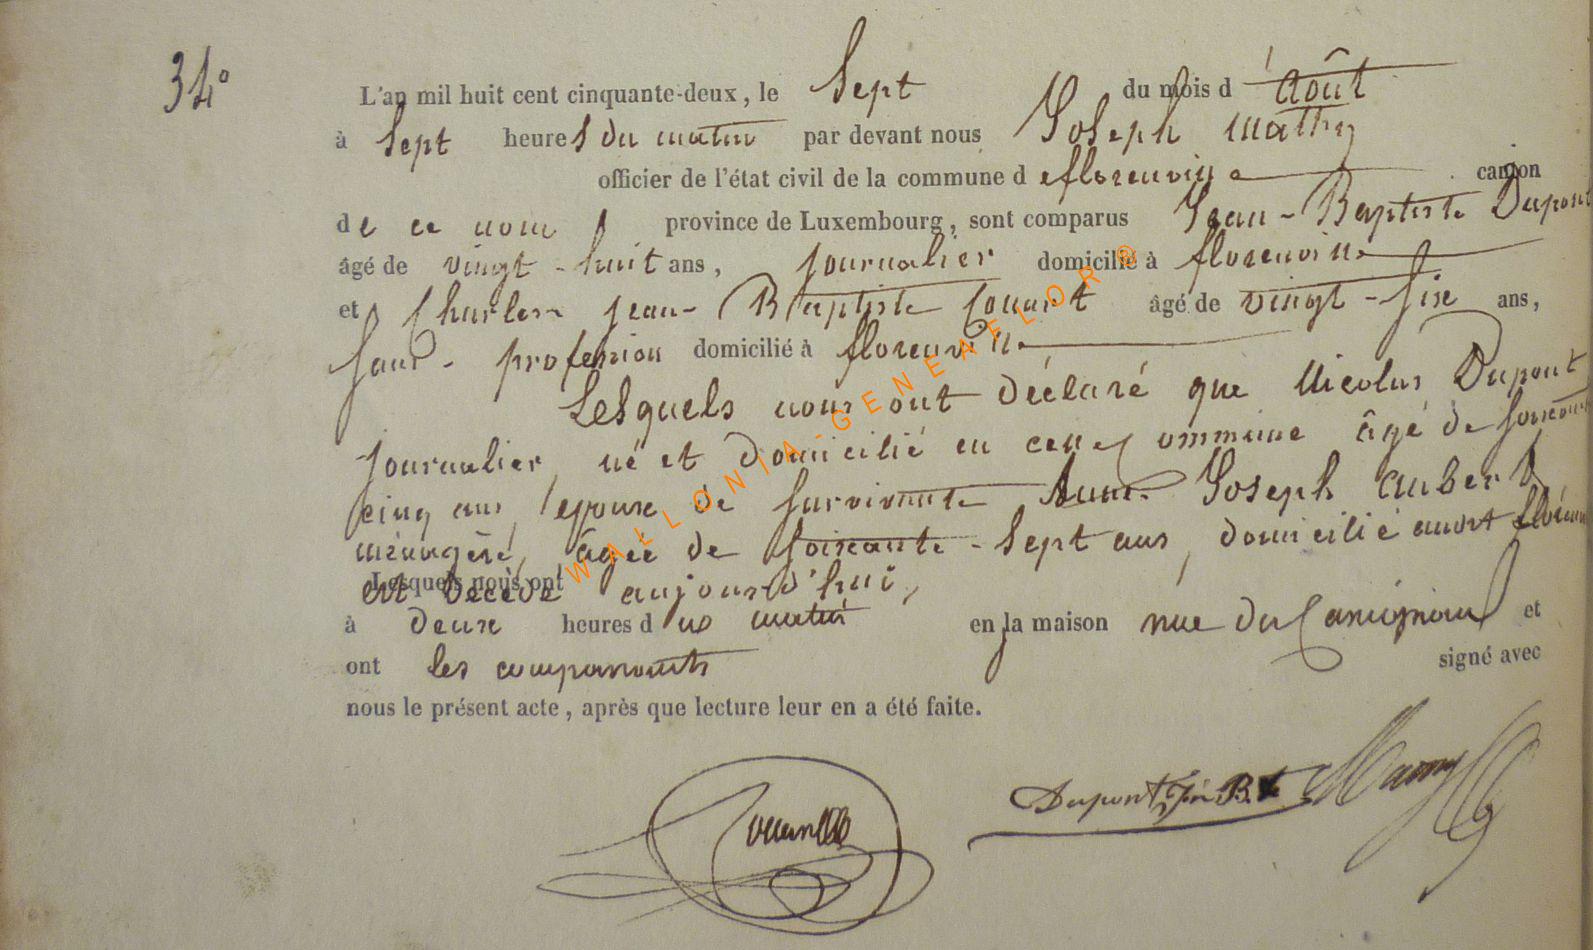 34°
L'an mil huit cent cinquante-deux, le Sept du mois d'Août
à Sept heures du matin par devant nous Joseph Mathy
officier de l'état civil de la commune de florenville canton
de ce nom province de Luxembourg, sont comparus Jean-Baptiste Dupont
âgé de vingt-huit ans, journalier domicilié à florenville
et Charles Jean-Baptiste âgé de vingt-six ans,
sans-profession domicilié à florenville
Lesquels nous ont déclaré que Nicolas Dupont
journalier, né et domicilié en cette Commune âgé de soixante
cinq ans, époux de survivante Anne Joseph Aubert
ménagère, âgée de soixante-sept ans, domicilié
Lesquels nous ont
est décédé aujourd'hui,
à deux heures du matin en la maison rue du et
ont les comparants signé avec
nous le présent acte, après que lecture leur en a été faite.
Dupont Jn Bte
WALLONIA-GENEAFLOR®